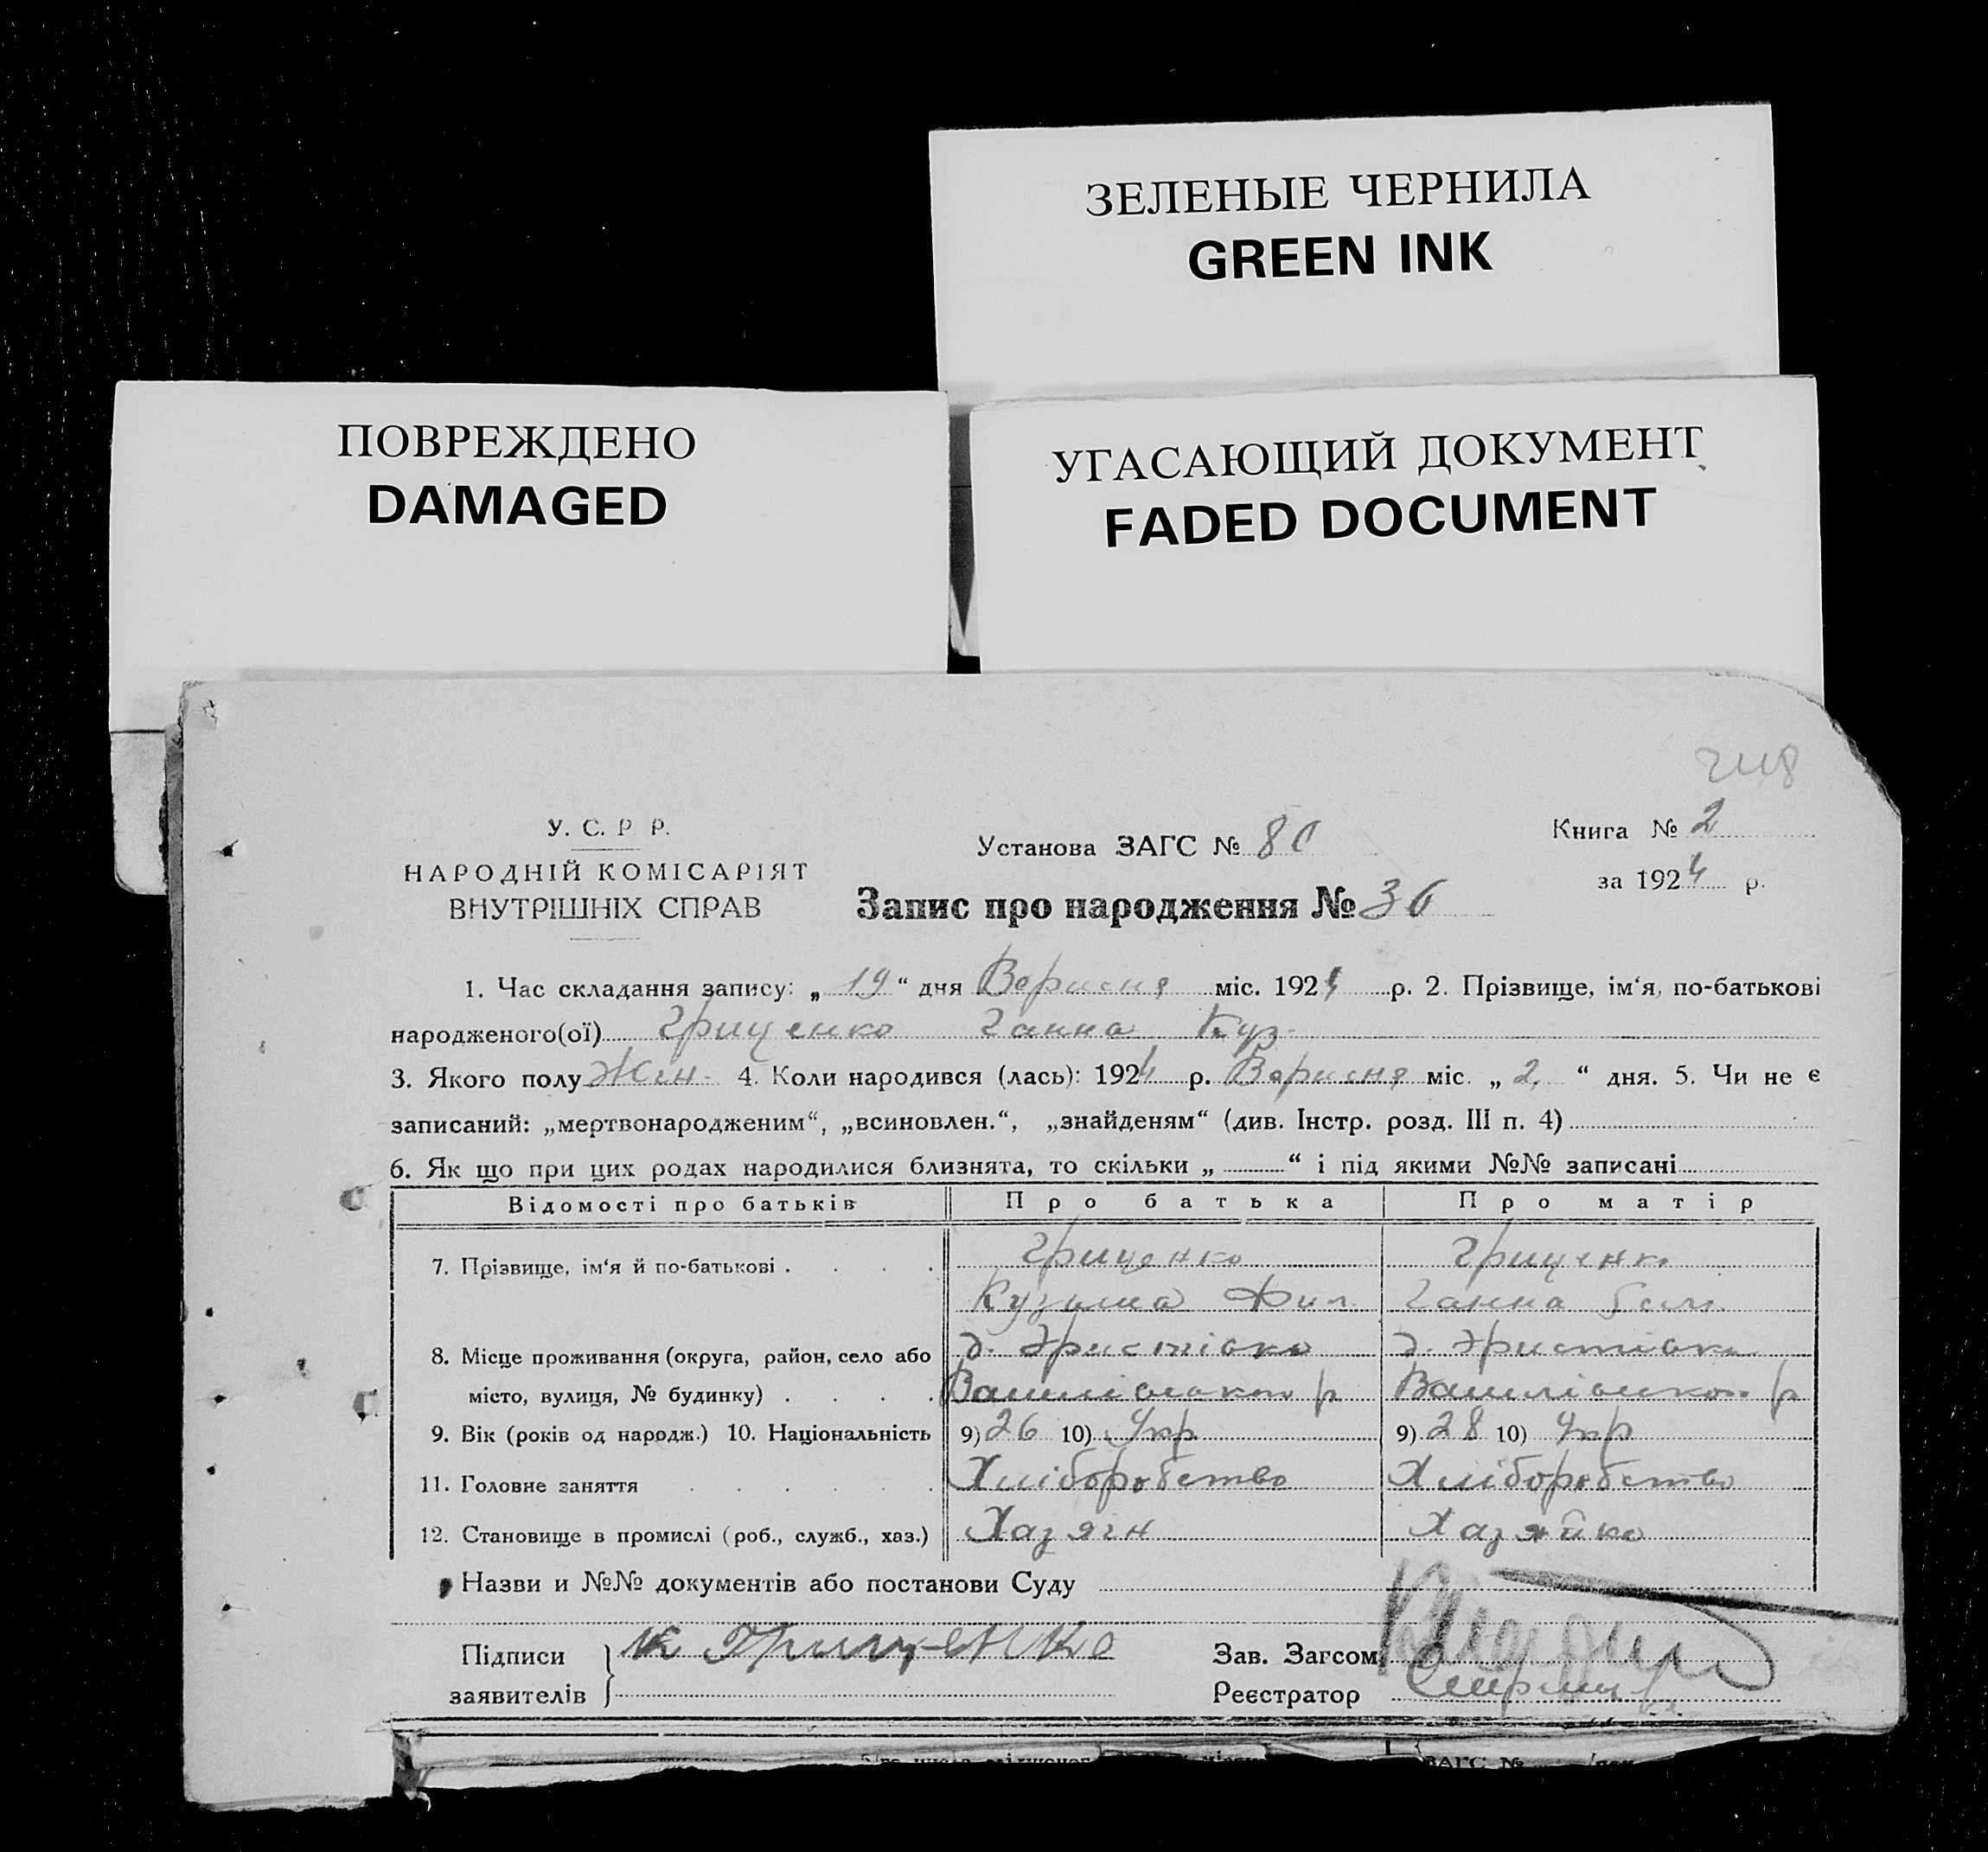 ЗЕЛЕНЫЕ ЧЕРНИЛА
GREEN INK
ПОВРЕЖДЕНО
DAMAGED
УГАСАЮЩИЙ ДОКУМЕНТ
FADED DOCUMENT
У. С. Р Р.
НАРОДНІЙ КОМІСАРІЯТ
ВНУТРІШНІХ СПРАВ
Установа ЗАГС № 80
Книга № 2
за 1924 р.
Запис про народження № 36
1. Час складання запису: „ 19 “ дня Вересня міс. 1924 р. 2. Прізвище, ім‘я, по-батькові
народженого(ої) Гриценко Ганна Куз.
3. Якого полу Жін. 4. Коли народився (лась): 1924 р. Вересня міс. „ 2 “ дня. 5. Чи не є
записаний: „мертвонародженим“, „всиновлен.“, „знайденям“ (див. Інстр. розд. III п. 4)
6. Як що при цих родах народилися близнята, то скільки „ “ і під якими №№ записані
Відомості про батьків Про батька Про матір
7. Прізвище, ім‘я й по-батькові Гриценко Гриценко
Кузьма Фил. Ганна
8. Місце проживання (округа, район, село або д. Христівка д. Христівка
місто, вулиця, № будинку) р р
9. Вік (років од народж.) 10. Національність 9) 26 10) Укр 9) 28 10) Укр
11. Головне заняття Хліборобство Хліборобство
12. Становище в промислі (роб., служб., хаз.) Хазяїн Хазяйка
Назви и №№ документів або постанови Суду
Підписи К Гриценко Зав. Загсом
заявителів Реєстратор
ЗАГС №